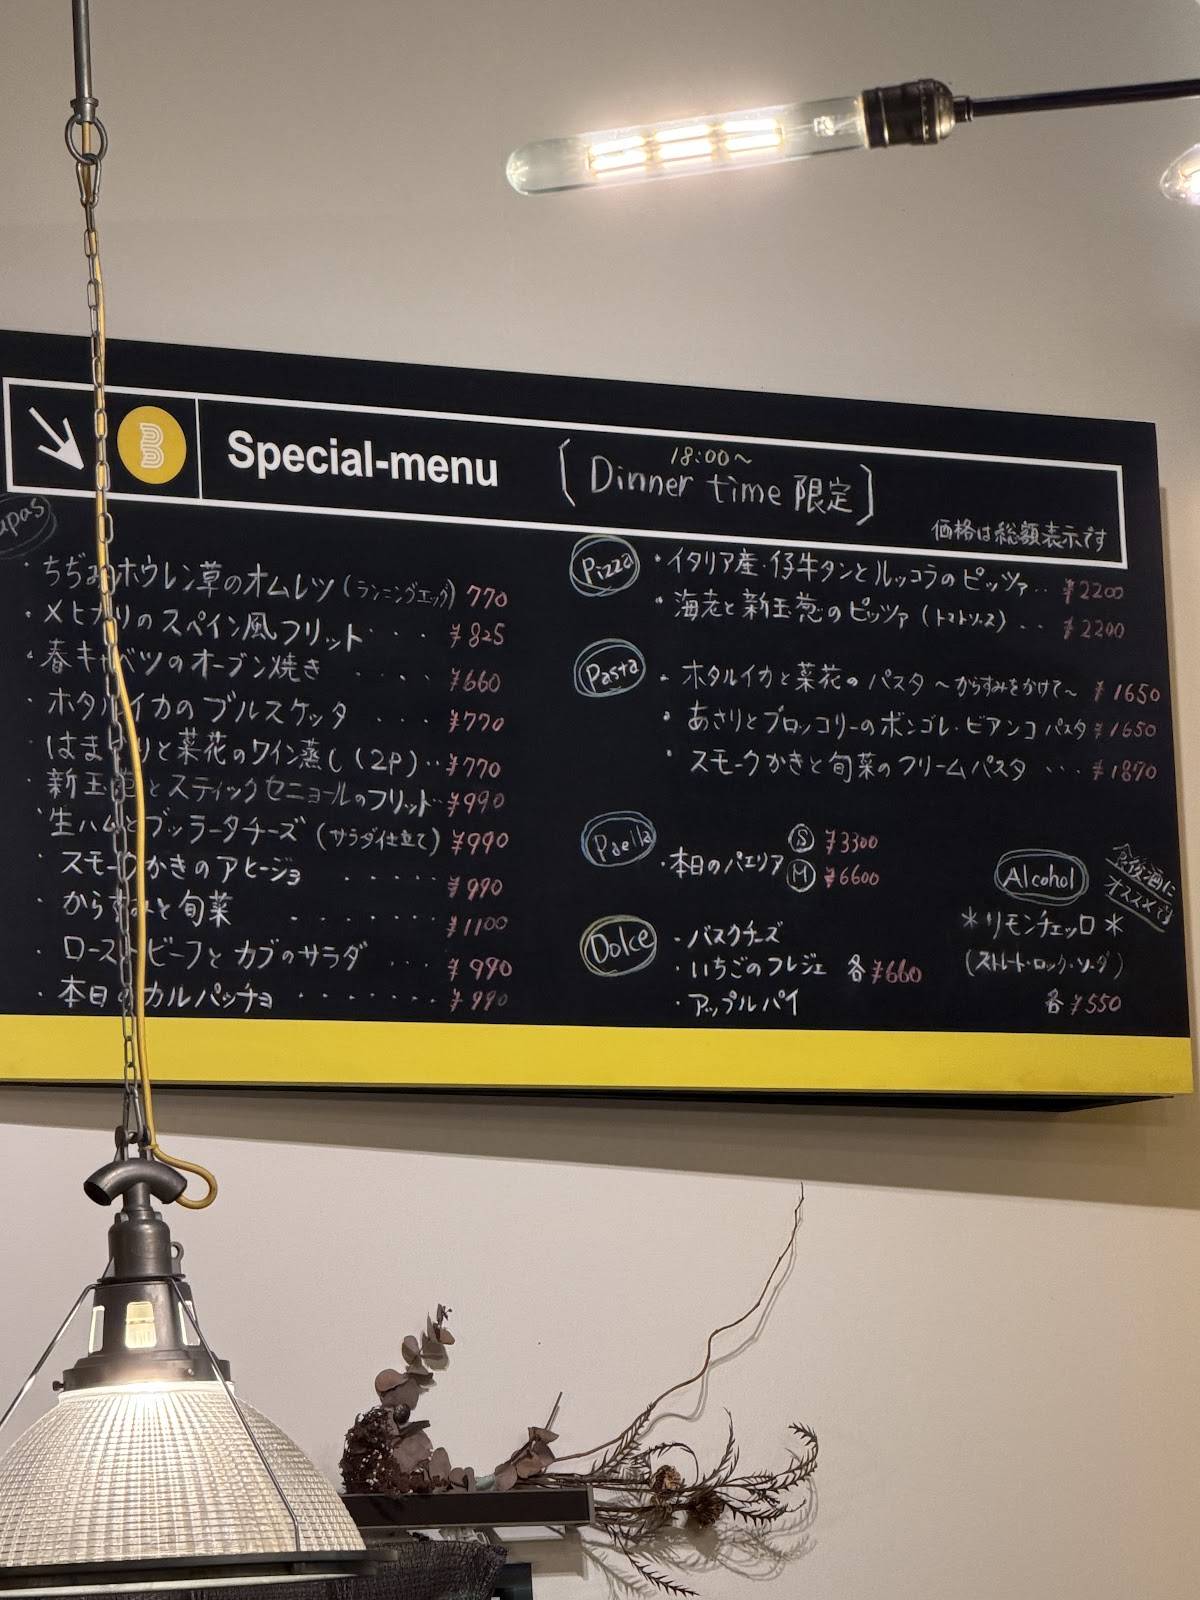 Special-menu
18:00〜
[Dinner time 限定]
価格は総額表示です
apas
・ちぢみホウレン草のオムレツ(ランニングエッグ) 770
・メヒカリのスペイン風フリット・・・ ¥825
・春キャベツのオーブン焼き ・・・・ ¥660
・ホタルイカのブルスケッタ ・・・ ¥770
・はまぐりと菜花のワイン蒸し(2P)・・¥770
・新玉葱とスティックセニョールのフリット・・¥990
・生ハムとブッラータチーズ(サラダ仕立て) ¥990
・スモークかきのアヒージョ ・・・・・ ¥990
・からすみと旬菜 ・・・・・・ ¥1100
・ローストビーフとカブのサラダ ・・・ ¥990
・本日のカルパッチョ ・・・・・・・ ¥990
Pizza
・イタリア産・仔牛タンとルッコラのピッツァ・・ ¥2200
・海老と新玉葱のピッツァ(トマトソース)・・ ¥2200
Pasta
・ホタルイカと菜花のパスタ〜からすみをかけて〜 ¥1650
・あさりとブロッコリーのボンゴレ・ビアンコパスタ ¥1650
・スモークかきと旬菜のクリームパスタ ・・・ ¥1870
Paella
・本日のパエリア
Ⓢ ¥3300
Ⓜ ¥6600
Dolce
・バスクチーズ
・いちごのフレジェ 各¥660
・アップルパイ
Alcohol
食後酒に
オススメです
＊リモンチェッロ＊
(ストレート・ロック・ソーダ)
各¥550